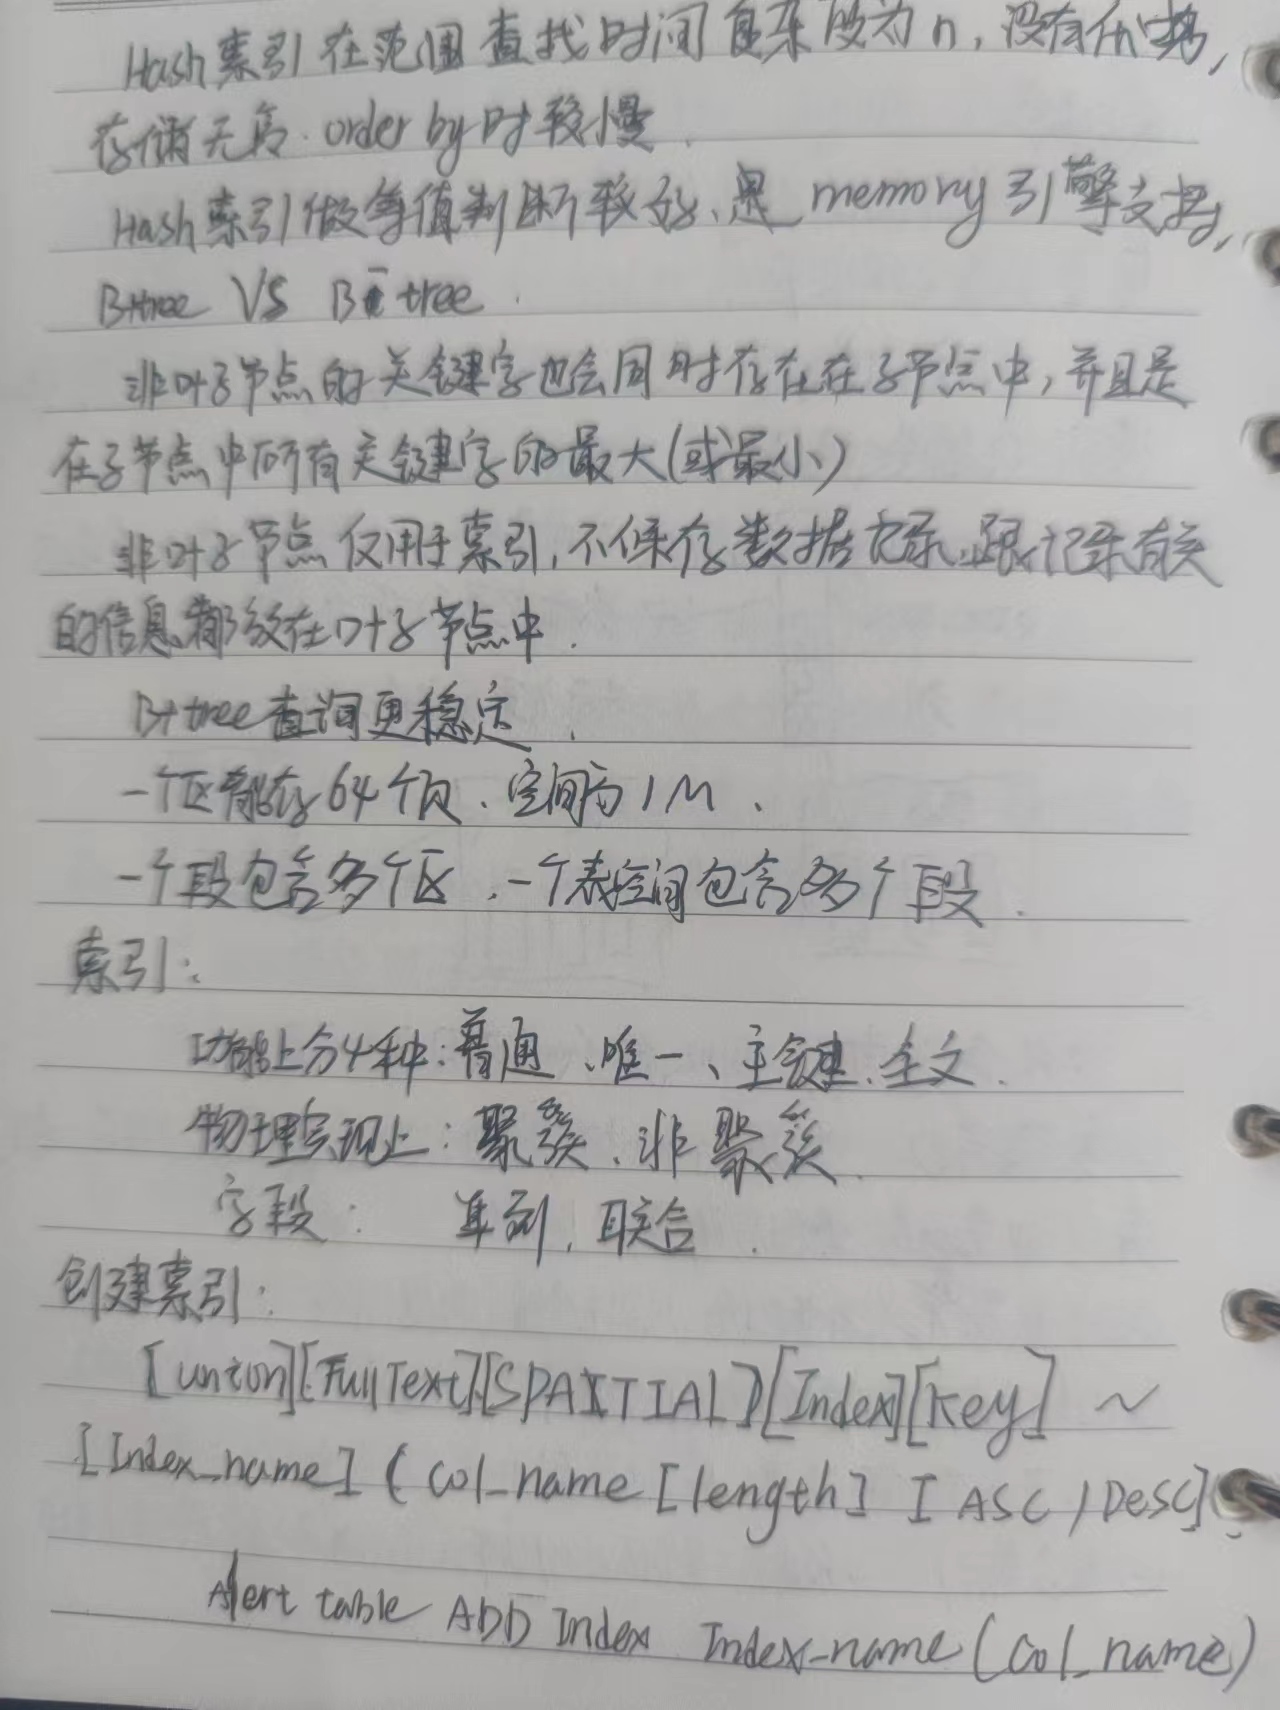 Hash索引在范围查找时间复杂度为n,没有优势,
存储无序.order by时较慢.
Hash索引做等值判断较好、是memory引擎支持,
B+tree VS B-tree.
非叶子节点的关键字也会同时存在在子节点中,并且是
在子节点中所有关键字的最大(或最小)
非叶子节点仅用于索引,不保存数据记录.跟记录有关
的信息都放在叶子节点中.
B+tree查询更稳定.
一个区能存64个页、空间为1M、
一个段包含多个区.一个表空间包含多个段.
索引:
功能上分4种:普通、唯一、主键、全文.
物理实现上:聚簇、非聚簇.
字段: 单列,联合.
创建索引:
[union][FullText][SPAITIAL][Index][Key] ~
[Index_name] (col_name [length] [ASC/DESC]
Alert table ADD Index Index_name (col_name)